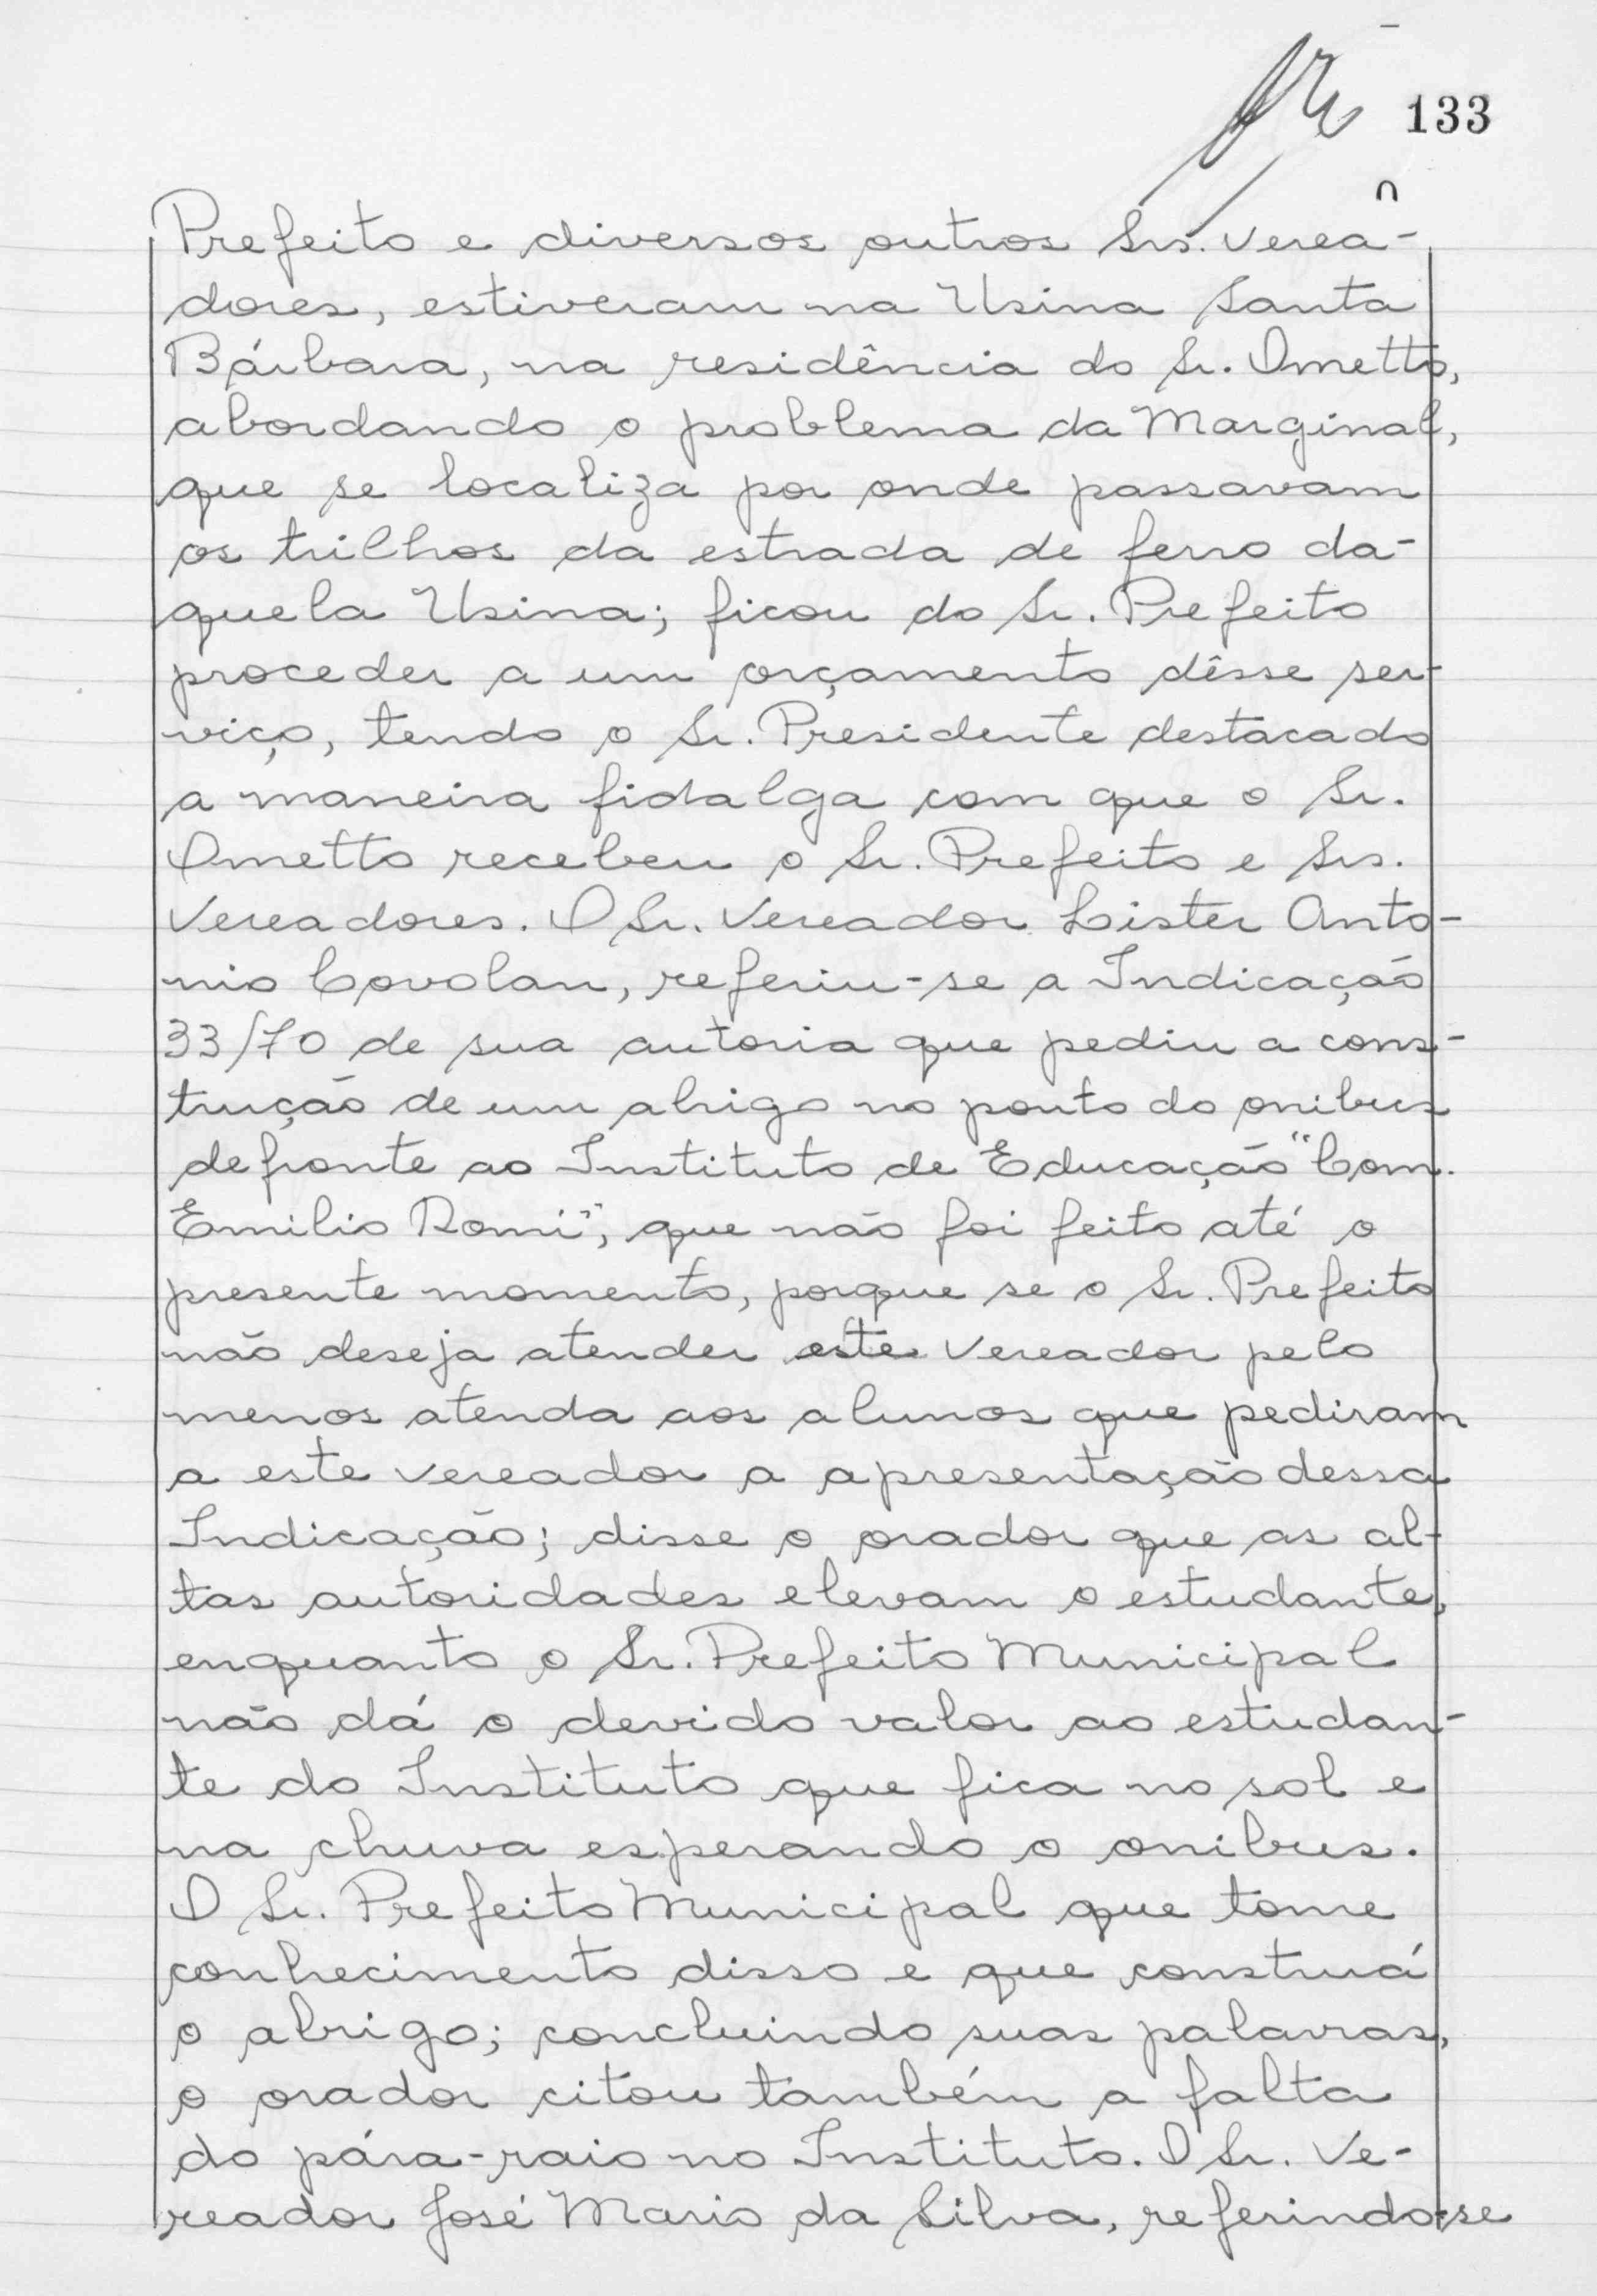 133
Prefeito e diversos outros Srs. Verea-
dores, estiveram na Usina Santa
Bárbara, na residência do Sr. Ometto,
abordando o problema da Marginal,
que se localiza por onde passavam
os trilhos da estrada de ferro da-
quela Usina; ficou do Sr. Prefeito
proceder a um orçamento dêsse ser-
viço, tendo o Sr. Presidente destacado
a maneira fidalga com que o Sr.
Ometto recebeu o Sr. Prefeito e Srs.
Vereadores. O Sr. Vereador Lister Anto-
nio Covolan, referiu-se a Indicação
33/70 de sua autoria que pediu a cons-
trução de um abrigo no ponto do onibus
defronte ao Instituto de Educação "Com.
Emilio Romi", que não foi feito até o
presente momento, porque se o Sr. Prefeito
não deseja atender este Vereador pelo
menos atenda aos alunos que pediram
a este vereador a apresentação dessa
Indicação; disse o orador que as al-
tas autoridades elevam o estudante,
enquanto o Sr. Prefeito Municipal
não dá o devido valor ao estudan-
te do Instituto que fica no sol e
na chuva esperando o onibus.
O Sr. Prefeito Municipal que tome
conhecimento disso e que construá
o abrigo; concluindo suas palavras,
o orador citou também a falta
do pára-raio no Instituto. O Sr. Ve-
reador José Maria da Silva, referindo-se